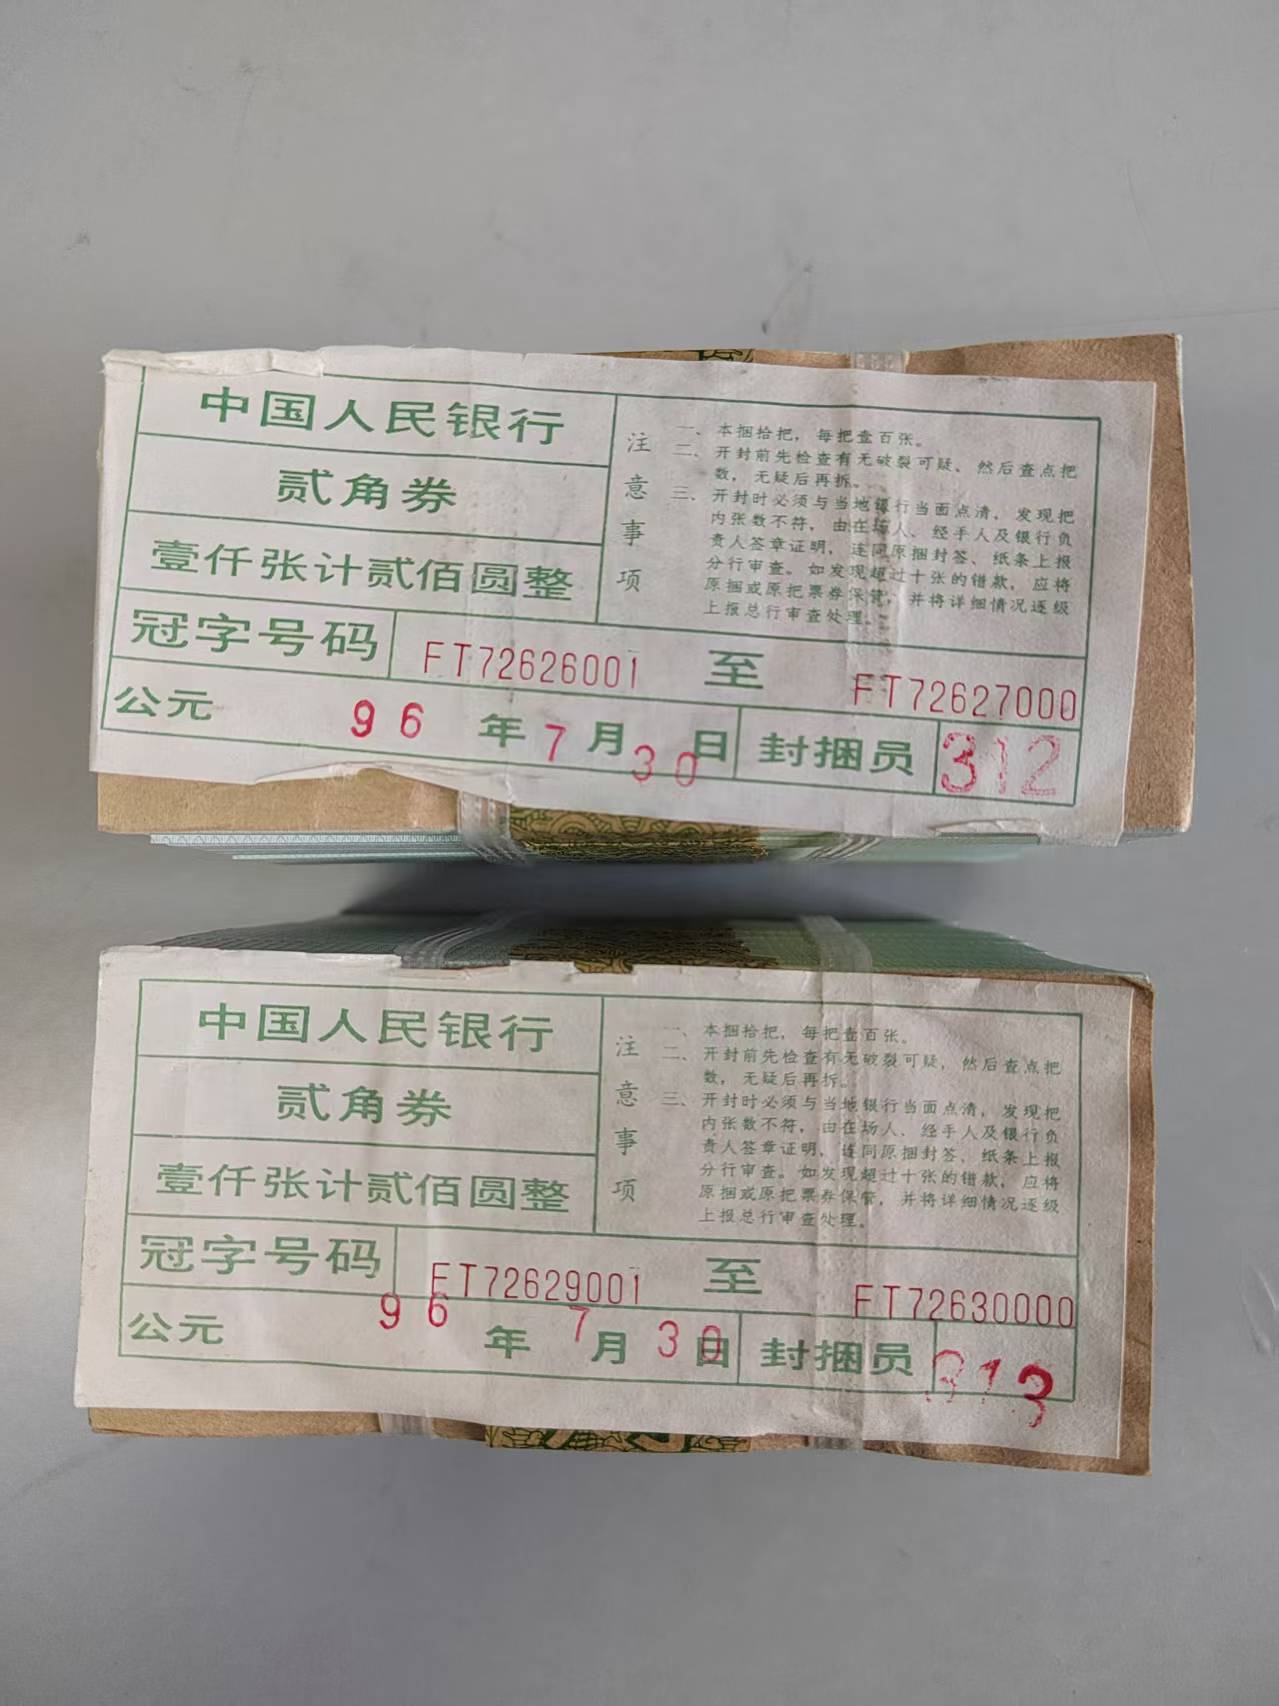 中国人民银行
贰角券
壹仟张计贰佰圆整
注意事项
一、本捆拾把，每把壹百张。
二、开封前先检查有无破裂可疑、然后查点把
数，无疑后再拆。
三、开封时必须与当地银行当面点清，发现把
内张数不符，由在场人、经手人及银行负
责人签章证明，连同原捆封签、纸条上报
分行审查。如发现超过十张的错款，应将
原捆或原把票券保管，并将详细情况逐级
上报总行审查处理。
冠字号码 FT72626001 至 FT72627000
公元 96 年 7 月 30 日 封捆员 312
中国人民银行
贰角券
壹仟张计贰佰圆整
注意事项
一、本捆拾把，每把壹百张。
二、开封前先检查有无破裂可疑，然后查点把
数，无疑后再拆。
三、开封时必须与当地银行当面点清，发现把
内张数不符，由在场人、经手人及银行负
责人签章证明，连同原捆封签、纸条上报
分行审查。如发现超过十张的错款，应将
原捆或原把票券保管，并将详细情况逐级
上报总行审查处理。
冠字号码 FT72629001 至 FT72630000
公元 96 年 7 月 30 日 封捆员 313